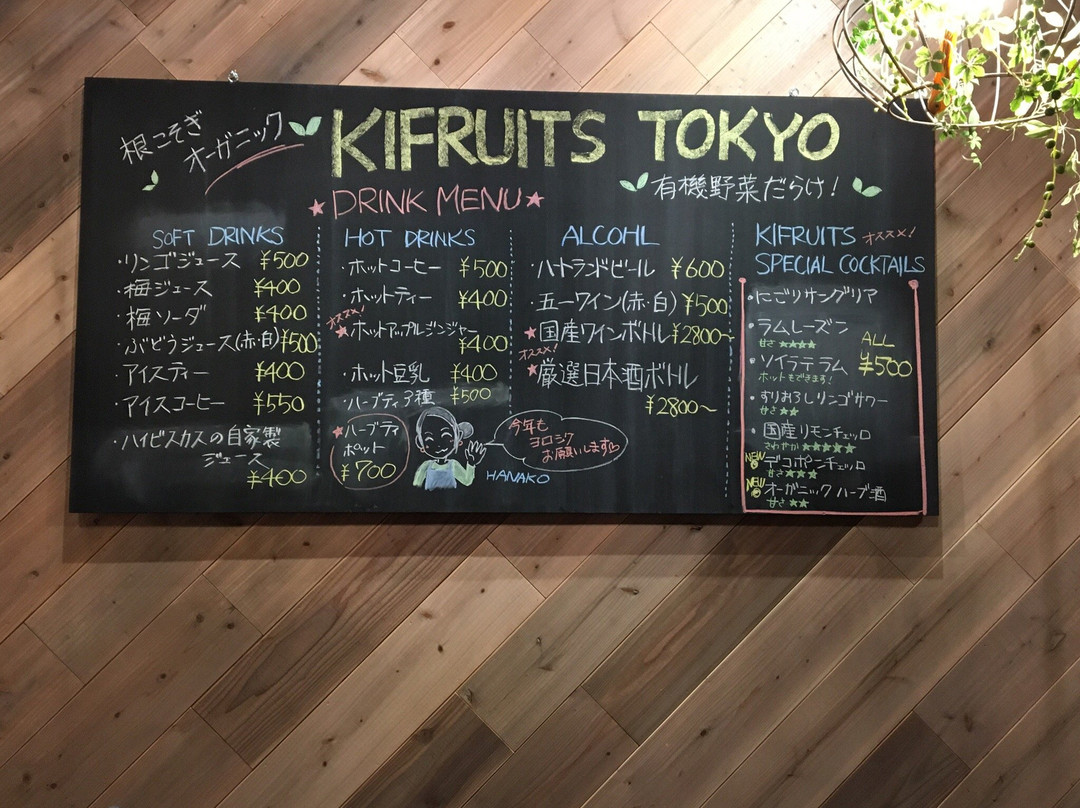 根こそぎ
オーガニック
KIFRUITS TOKYO
有機野菜だらけ!
DRINK MENU
SOFT DRINKS
・リンゴジュース ¥500
・梅ジュース ¥400
・梅ソーダ ¥400
・ぶどうジュース(赤・白) ¥500
・アイスティー ¥400
・アイスコーヒー ¥550
・ハイビスカスの自家製
ジュース
¥400
HOT DRINKS
・ホットコーヒー ¥500
・ホットティー ¥400
オススメ!
★ホットアップルジンジャー
¥400
・ホット豆乳 ¥400
・ハーブティ3種 ¥500
★ハーブティ
ポット
¥700
今年も
ヨロシク
お願いします
HANAKO
ALCOHL
・ハートランドビール ¥600
・五一ワイン(赤・白) ¥500
★国産ワインボトル ¥2800~
オススメ!
★厳選日本酒ボトル
¥2800~
KIFRUITS オススメ!
SPECIAL COCKTAILS
・にごりサングリア
・ラムレーズン
甘さ★★★★
・ソイラテラム
ホットもできます!
ALL
¥500
・すりおろしリンゴサワー
甘さ★★
・国産リモンチェッロ
さわやか★★★★★
NEW デコポンチェッロ
甘さ★★★
NEW オーガニックハーブ酒
甘さ★★